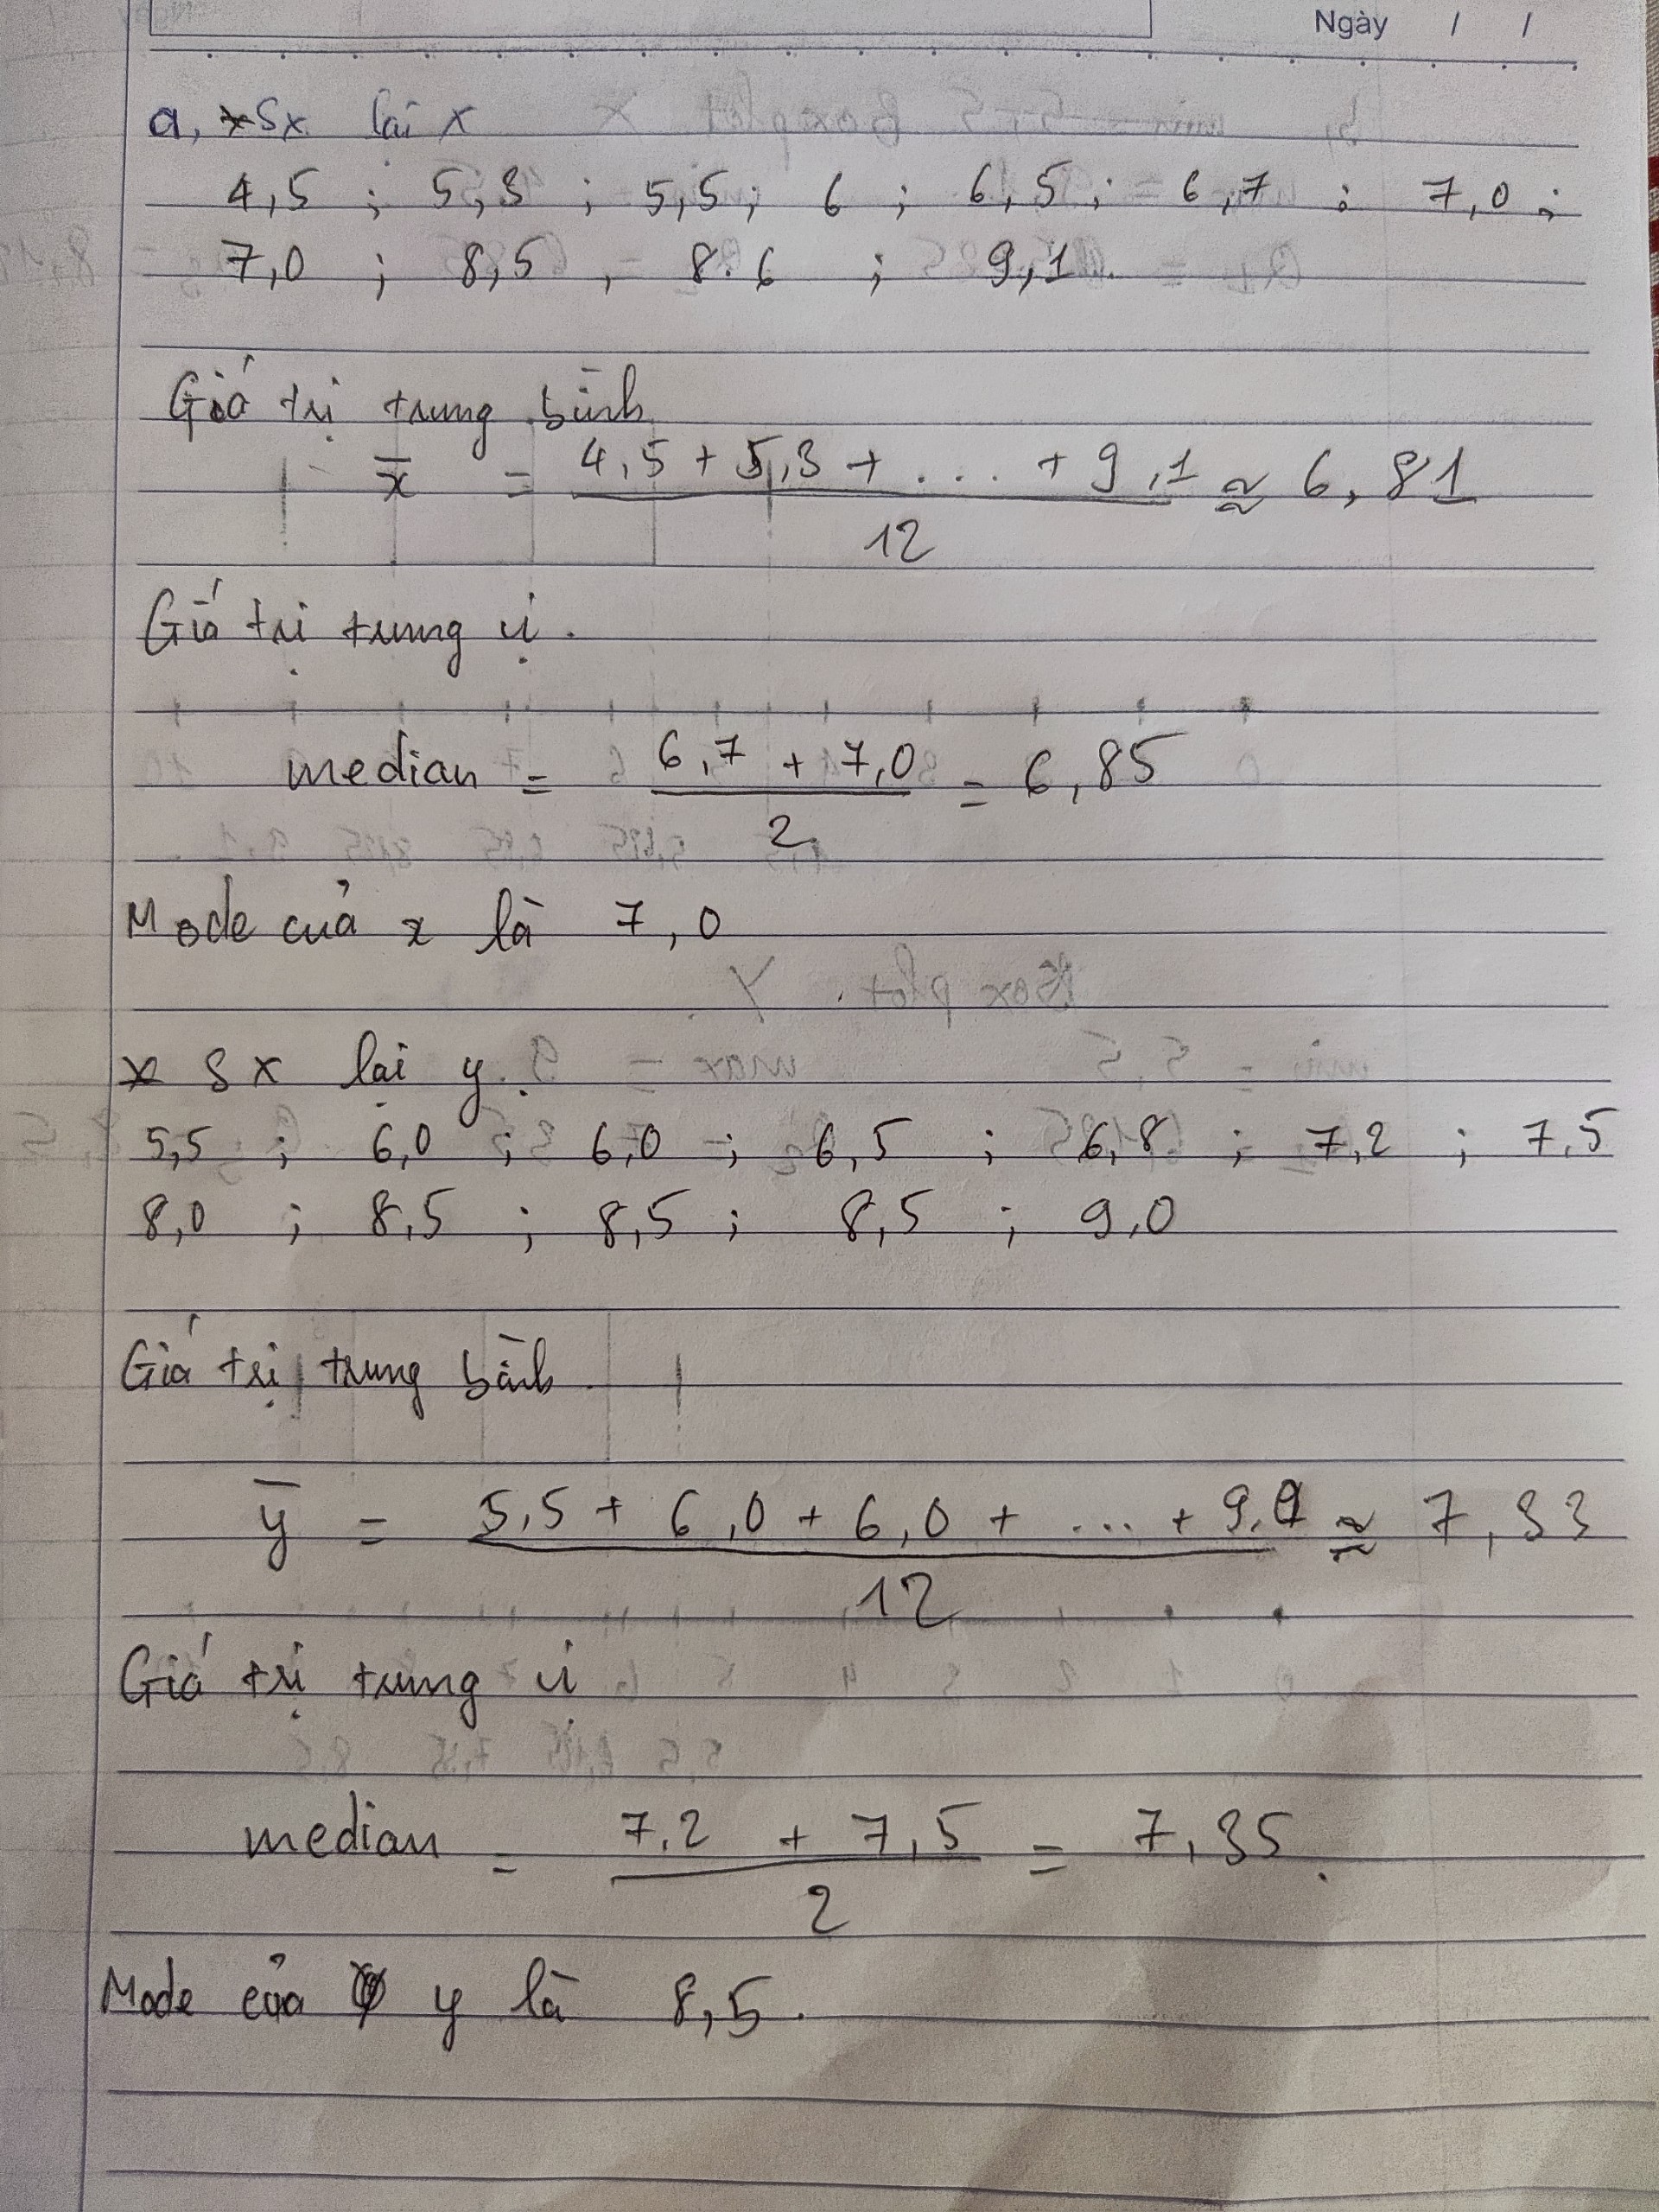 Ngày / /
a, * Sx lại x
4,5 ; 5,3 ; 5,5 ; 6 ; 6,5 ; 6,7 ; 7,0 ;
7,0 ; 8,5 , 8.6 ; 9,1.
Giá trị trung bình
x̄ = (4,5 + 5,3 + ... + 9,1) / 12 ≈ 6,81
Giá trị trung vị.
median = (6,7 + 7,0) / 2 = 6,85
Mode của x là 7,0
* Sx lại y.
5,5 ; 6,0 ; 6,0 ; 6,5 ; 6,8 ; 7,2 ; 7,5
8,0 ; 8,5 ; 8,5 ; 8,5 ; 9,0
Giá trị trung bình.
ȳ = (5,5 + 6,0 + 6,0 + ... + 9,0) / 12 ≈ 7,33
Giá trị trung vị
median = (7,2 + 7,5) / 2 = 7,35.
Mode của y là 8,5.